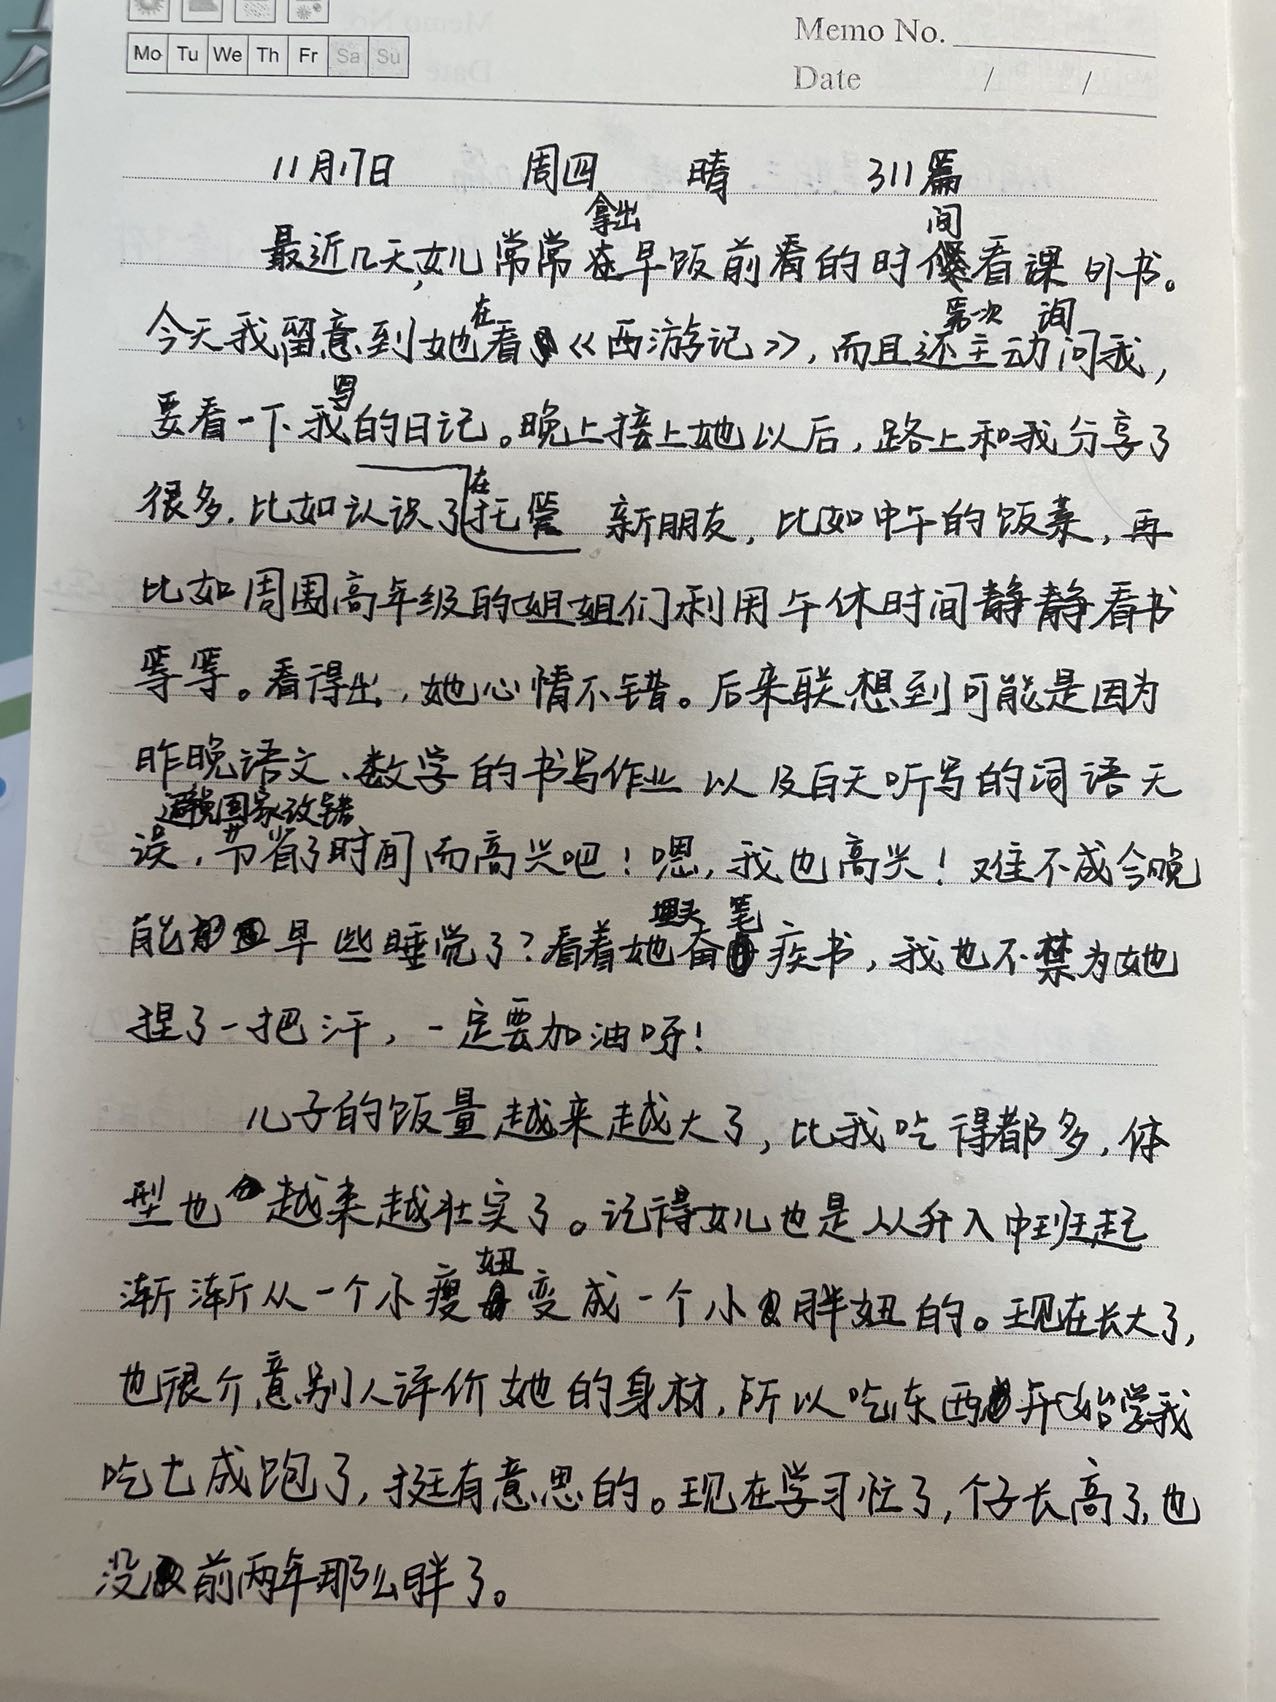 Mo Tu We Th Fr Sa Su
Memo No.
Date / /
11月17日 周四 晴 311篇
拿出 间
最近几天,女儿常常在早饭前看的时候看课外书。
在 第一次 询
今天我留意到她看《西游记》,而且还主动问我,
写
要看一下我的日记。晚上接上她以后,路上和我分享了
在
很多,比如认识了托管 新朋友,比如中午的饭菜,再
比如周围高年级的姐姐们利用午休时间静静看书
等等。看得出,她心情不错。后来联想到可能是因为
昨晚语文、数学的书写作业以及白天听写的词语无
避免回家改错
误,节省了时间而高兴吧!嗯,我也高兴!难不成今晚
埋头 笔
能早些睡觉了?看着她奋疾书,我也不禁为她
捏了一把汗,一定要加油呀!
儿子的饭量越来越大了,比我吃得都多,体
型也越来越壮实了。记得女儿也是从升入中班起
妞
渐渐从一个小瘦变成一个小胖妞的。现在长大了,
也很介意别人评价她的身材,所以吃东西开始学我
吃七成饱了,挺有意思的。现在学习忙了,个子长高了,也
没前两年那么胖了。